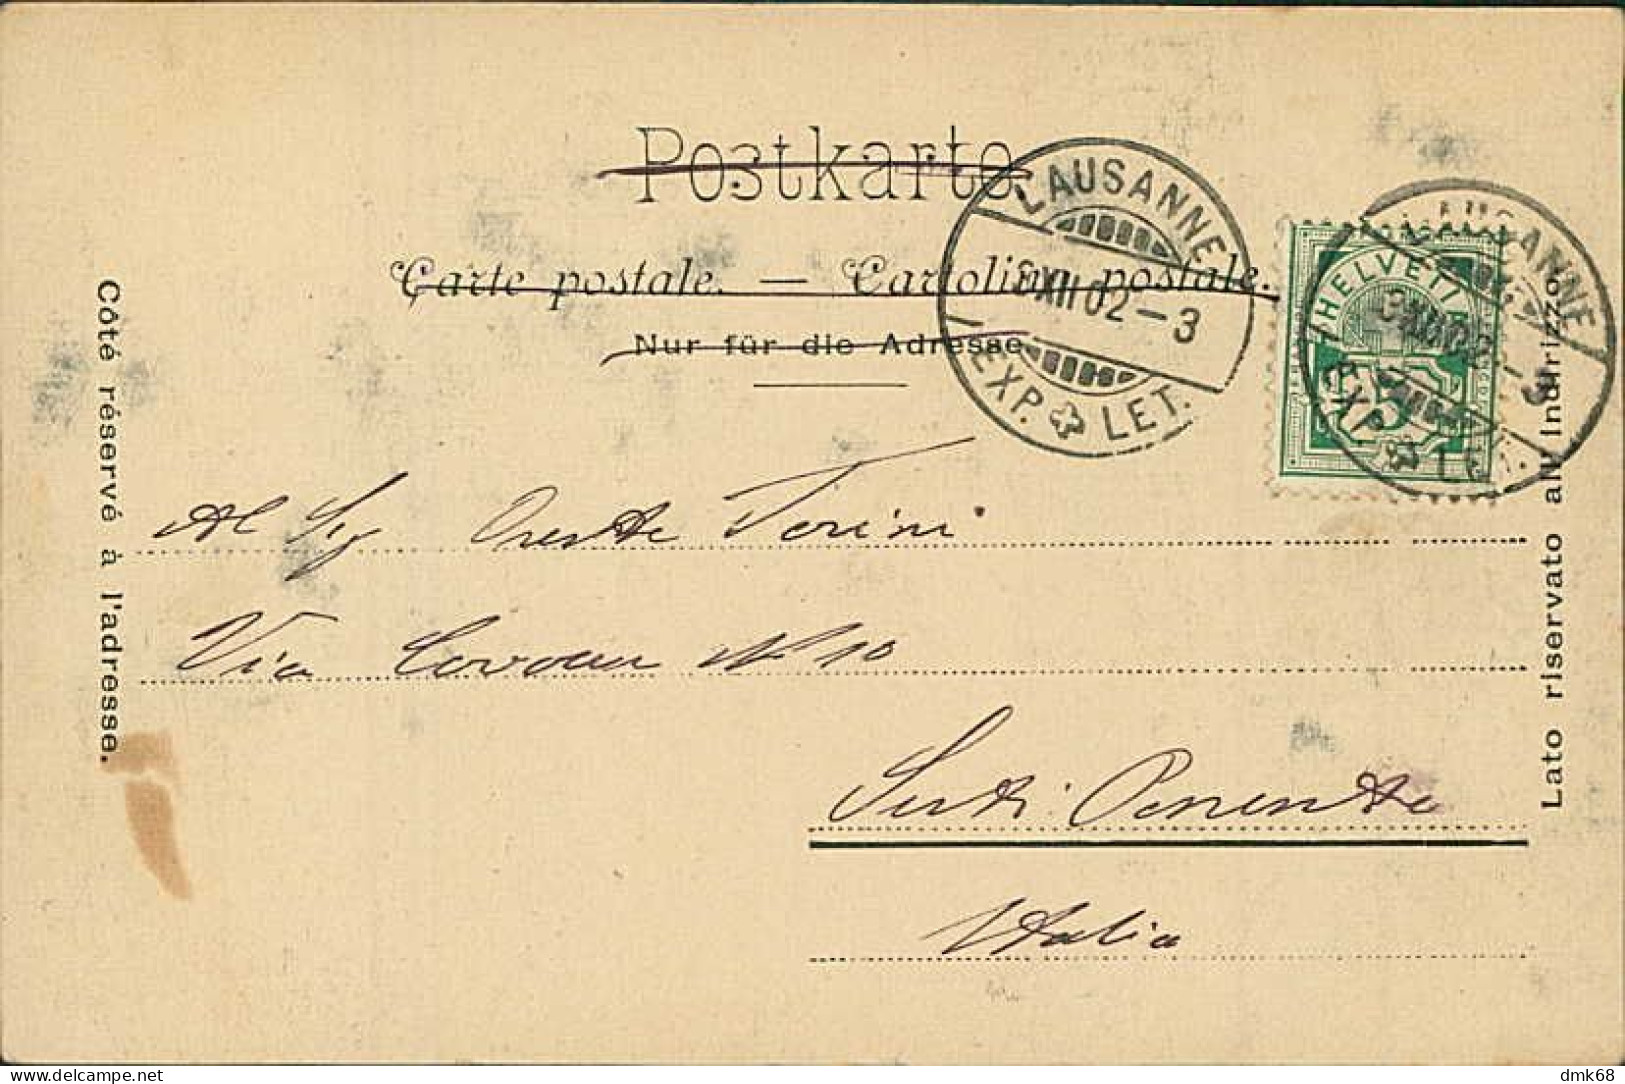 Postkarte
Carte postale. — Cartolina postale.
Nur für die Adresse
Côté réservé à l'adresse.
Lato riservato all' Indirizzo
LAUSANNE
XII 02 – 3
EXP. LET.
HELVETIA
5
LAUSANNE
EXP. LET.
Al Sig Oreste Torini
Via Cavour N 10
Sestri Ponente
Italia
delcampe.net
dmk68